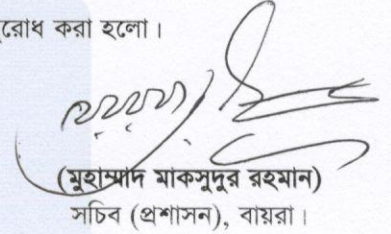 রোধ করা হলো।
(মুহাম্মাদ মাকসুদুর রহমান)
সচিব (প্রশাসন), বায়রা।